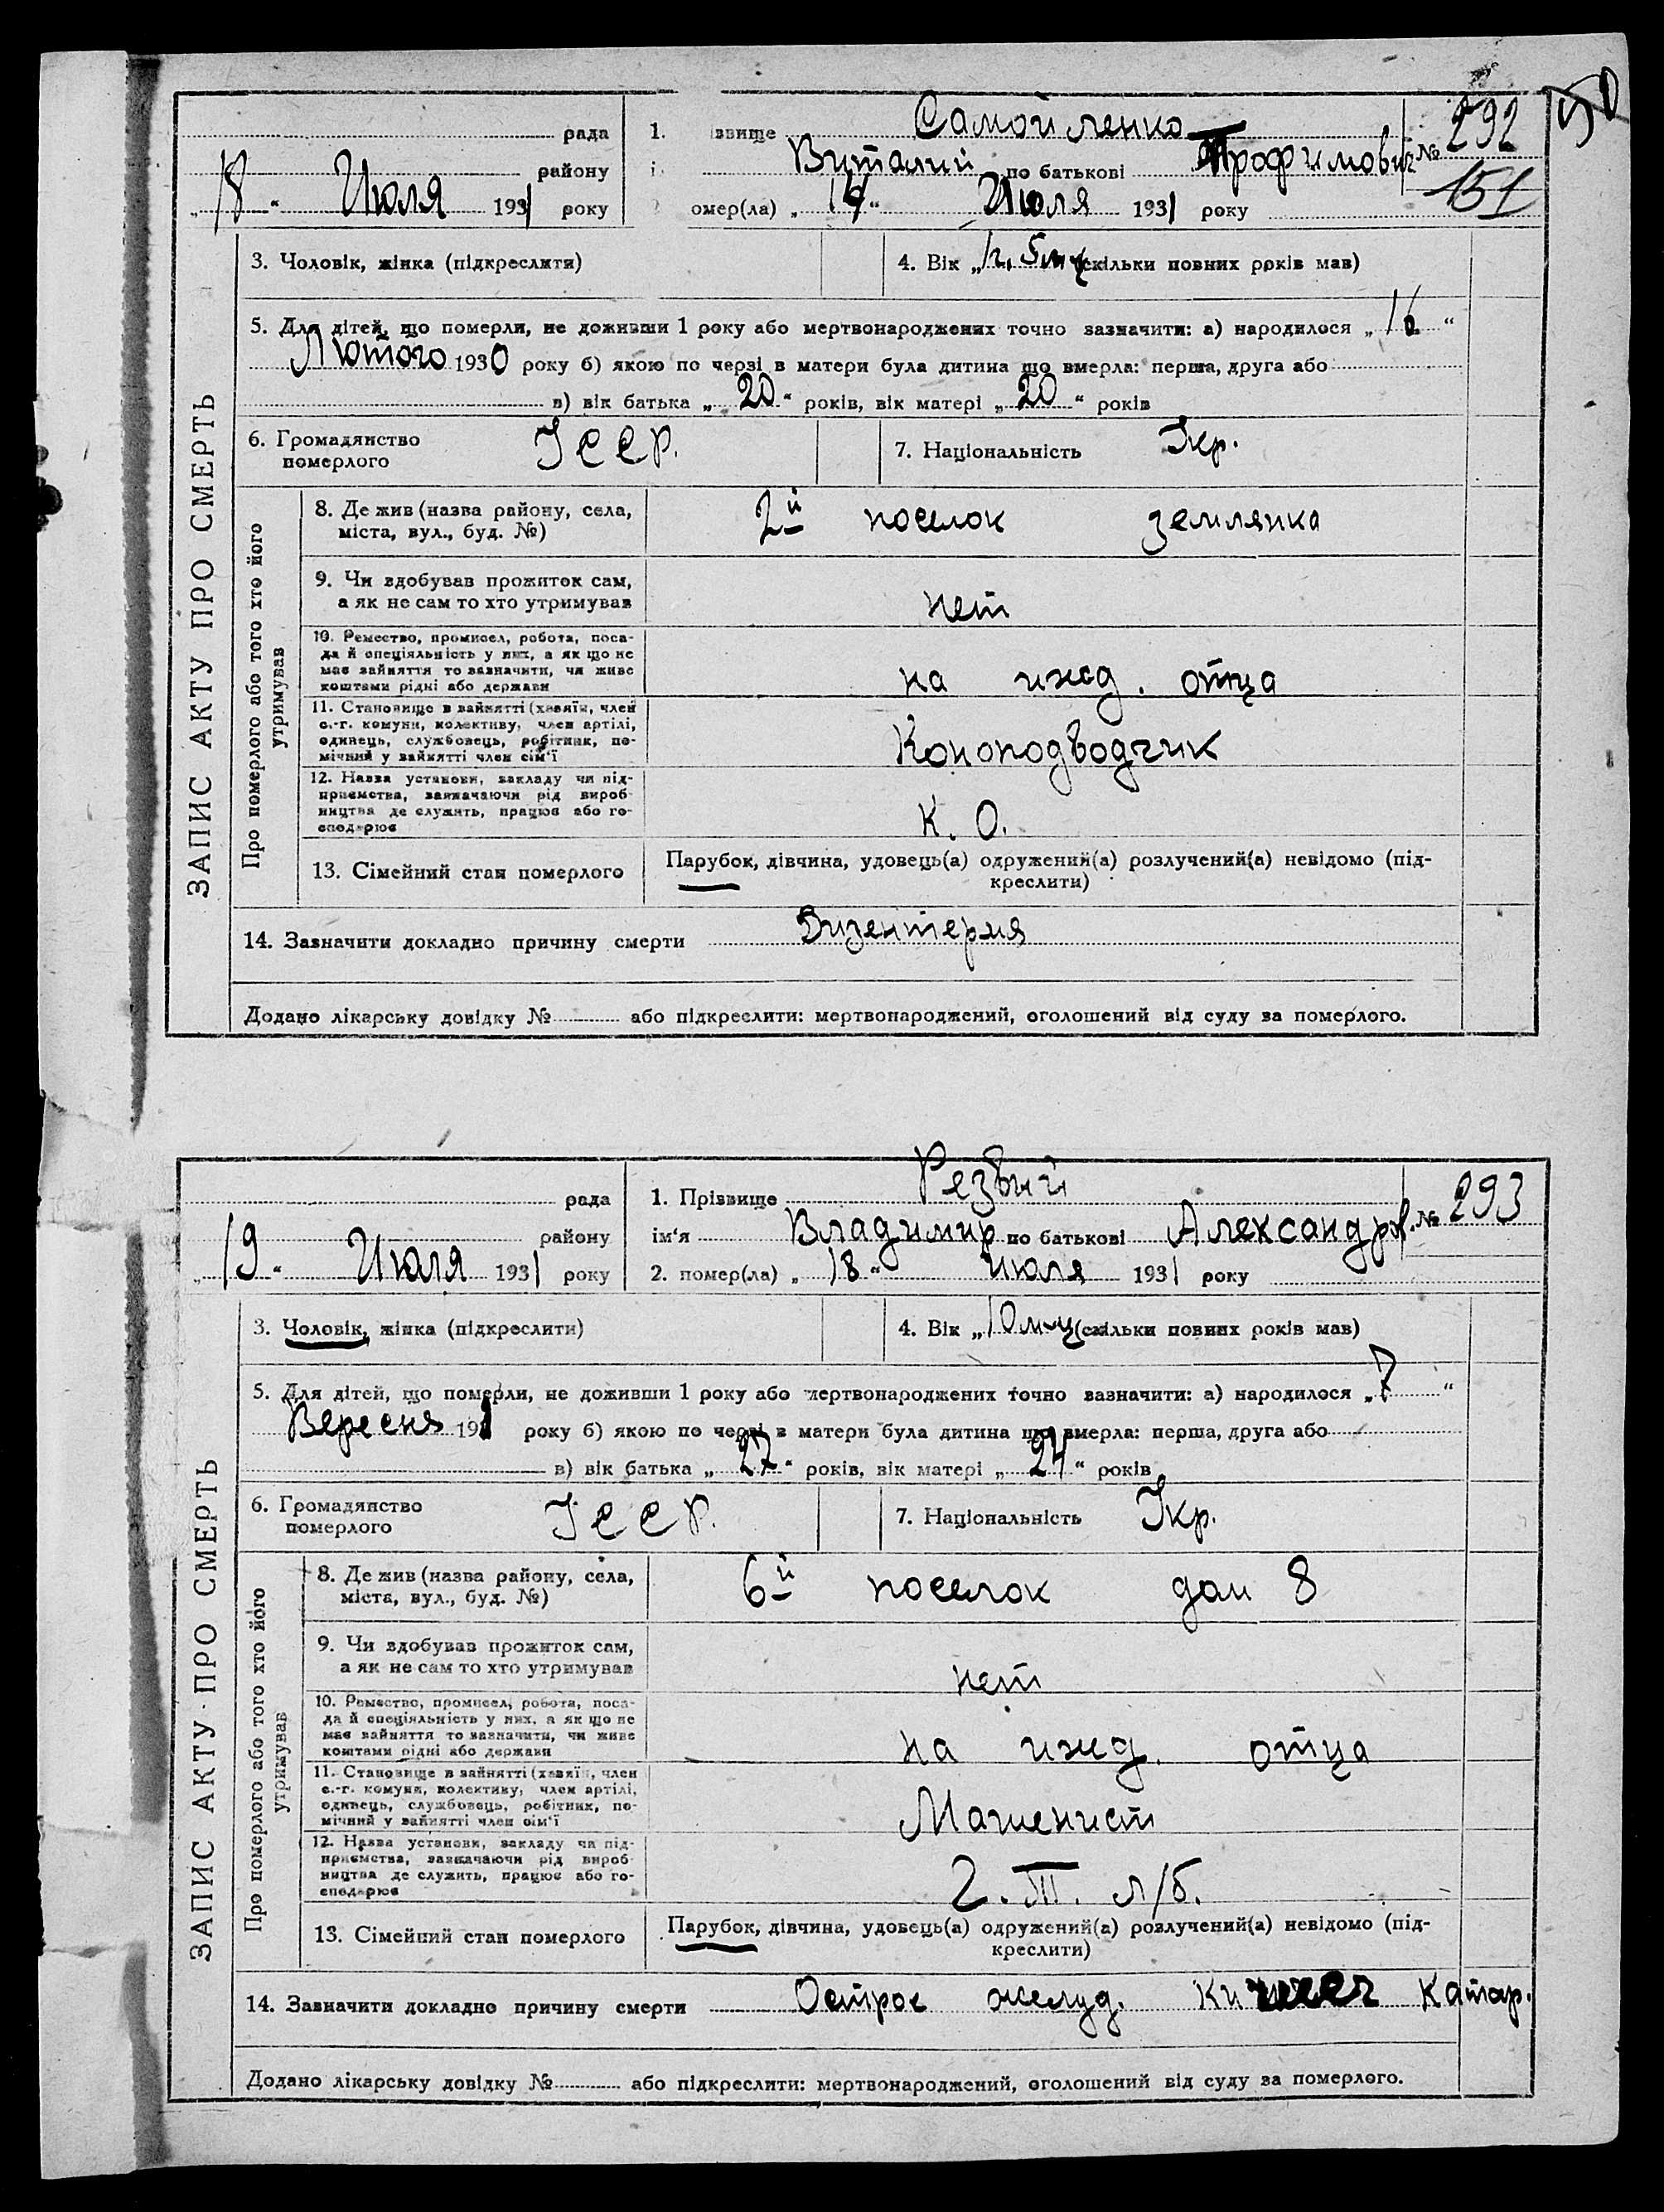 рада
району
„18“ Июля 1931 року
1. звище Самойленко
Виталий по батькові Трофимович
омер(ла) „14“ Июля 1931 року
№ 292
151
3. Чоловік, жінка (підкреслити)
4. Вік „1 г. 5 м-ц (скільки повних років мав)
5. Для дітей, що померли, не доживши 1 року або мертвонароджених точно зазначити: а) народилося „16“
Лютого 1930 року б) якою по черзі в матери була дитина що вмерла: перша, друга або
в) вік батька „20“ років, вік матері „20“ років
6. Громадянство
померлого
УССР.
7. Національність Укр.
ЗАПИС АКТУ ПРО СМЕРТЬ
Про померлого або того хто його
утримував
8. Де жив (назва району, села,
міста, вул., буд. №)
2й поселок землянка
9. Чи здобував прожиток сам,
а як не сам то хто утримував
нет
10. Ремество, промисел, робота, поса-
да й спеціяльність у них, а як що не
має зайняття то зазначити, чи живе
коштами рідні або держави
на ижд. отца
11. Становище в зайнятті (хазяїн, член
с.-г. комуни, колективу, член артілі,
одинець, службовець, робітник, по-
мічний у зайнятті член сім'ї
Коноподводчик
12. Назва установи, закладу чи під-
приємства, зазначаючи рід вироб-
ництва де служить, працює або го-
сподарює
К. О.
13. Сімейний стан померлого
Парубок, дівчина, удовець(а) одружений(а) розлучений(а) невідомо (під-
креслити)
14. Зазначити докладно причину смерти Дизентерия
Додано лікарську довідку № або підкреслити: мертвонароджений, оголошений від суду за померлого.
рада
району
„19“ Июля 1931 року
1. Прізвище Резвий
ім'я Владимир по батькові Александров.
2. помер(ла) „18“ июля 1931 року
№ 293
3. Чоловік, жінка (підкреслити)
4. Вік „10 м-ц (скільки повних років мав)
5. Для дітей, що померли, не доживши 1 року або мертвонароджених точно зазначити: а) народилося „7“
Вересня 19 року б) якою по черзі в матери була дитина що вмерла: перша, друга або
в) вік батька „27“ років, вік матері „24“ років
6. Громадянство
померлого
УССР.
7. Національність Укр.
ЗАПИС АКТУ ПРО СМЕРТЬ
Про померлого або того хто його
утримував
8. Де жив (назва району, села,
міста, вул., буд. №)
6й поселок дом 8
9. Чи здобував прожиток сам,
а як не сам то хто утримував
нет
10. Ремество, промисел, робота, поса-
да й спеціяльність у них, а як що не
має зайняття то зазначити, чи живе
коштами рідні або держави
на ижд. отца
11. Становище в зайнятті (хазяїн, член
с.-г. комуни, колективу, член артілі,
одинець, службовець, робітник, по-
мічний у зайнятті член сім'ї
Машенист
12. Назва установи, закладу чи під-
приємства, зазначаючи рід вироб-
ництва де служить, працює або го-
сподарює
Г. Т. л/б.
13. Сімейний стан померлого
Парубок, дівчина, удовець(а) одружений(а) розлучений(а) невідомо (під-
креслити)
14. Зазначити докладно причину смерти Острое желуд. Кишеч Катар.
Додано лікарську довідку № або підкреслити: мертвонароджений, оголошений від суду за померлого.